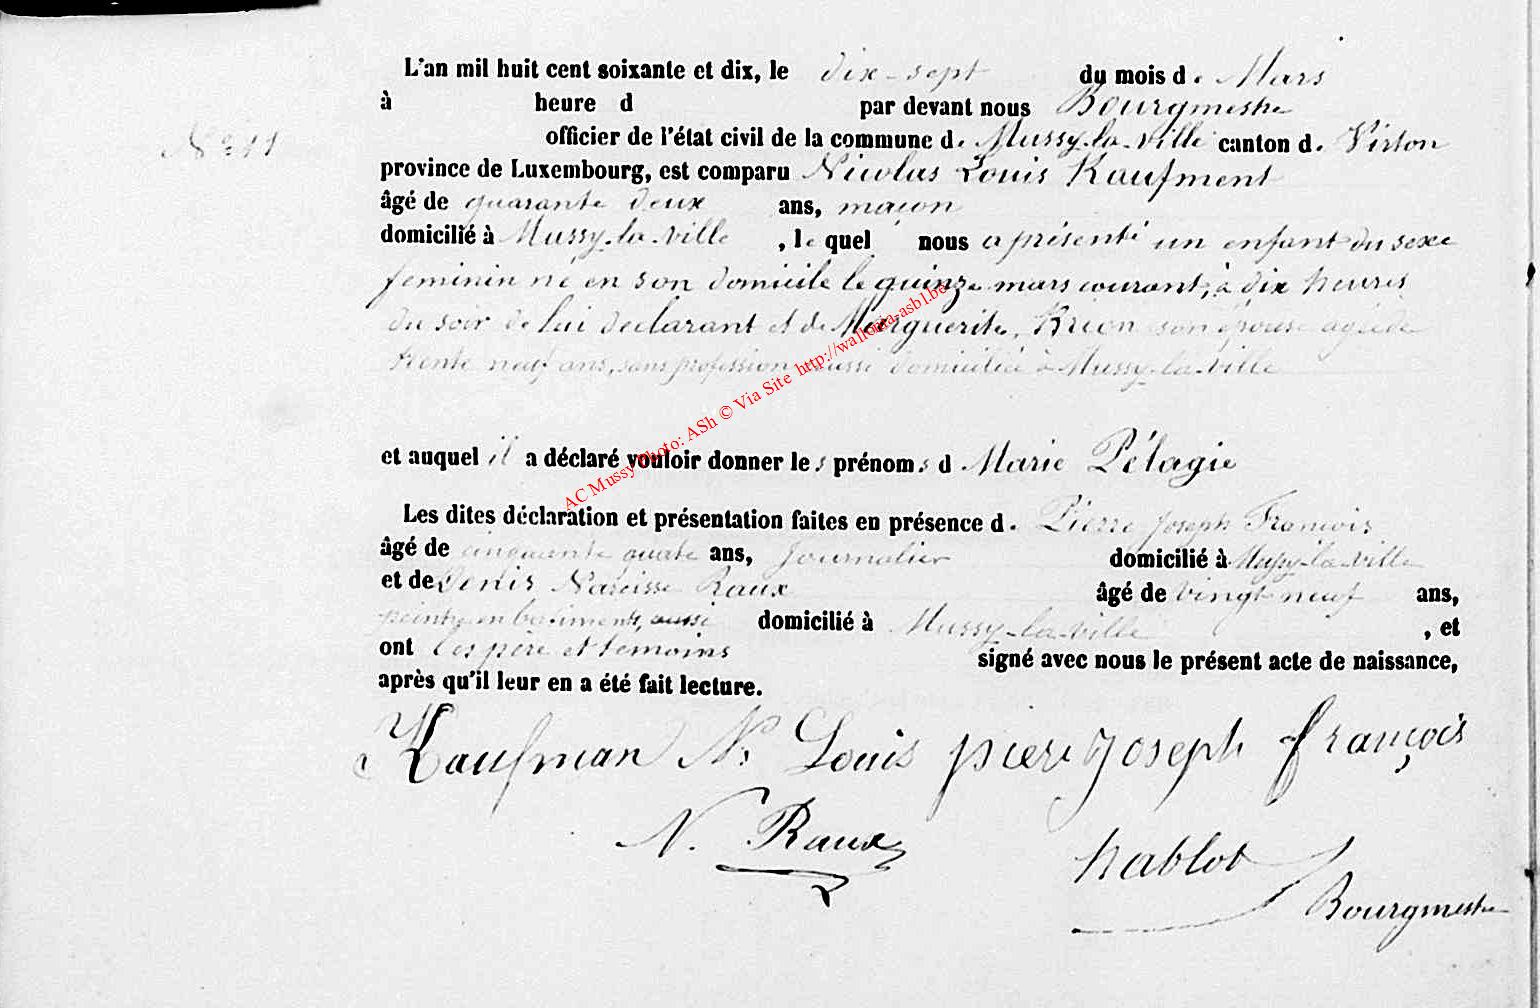 L'an mil huit cent soixante et dix, le dix-sept du mois de Mars
à heure d par devant nous Bourgmestre
Nº 11
officier de l'état civil de la commune de Mussy-la-ville canton d. Virton
province de Luxembourg, est comparu Nicolas Louis Kaufment
âgé de quarante deux ans, maçon
domicilié à Mussy-la-ville, lequel nous a présenté un enfant du sexe
feminin né en son domicile le quinze mars courant, à dix heures
du soir de lui declarant et de Marguerite, son épouse agée de
trente neuf ans, sans profession aussi domiciliée à Mussy-la-ville
et auquel il a déclaré vouloir donner les prénoms d Marie Pélagie
Les dites déclaration et présentation faites en présence d. Pierre Joseph François
âgé de cinquante quatre ans, Journalier domicilié à Mussy-la-ville
et de Denis Narcisse Raux âgé de vingt neuf ans,
peintre en batiments, aussi domicilié à Mussy-la-ville, et
ont les père et témoins signé avec nous le présent acte de naissance,
après qu'il leur en a été fait lecture.
Kaufman N. Louis piere joseph françois
N. Raux
hablot
Bourgmestre
AC Mussy Photo: ASh © Via Site http://wallonia-asbl.be